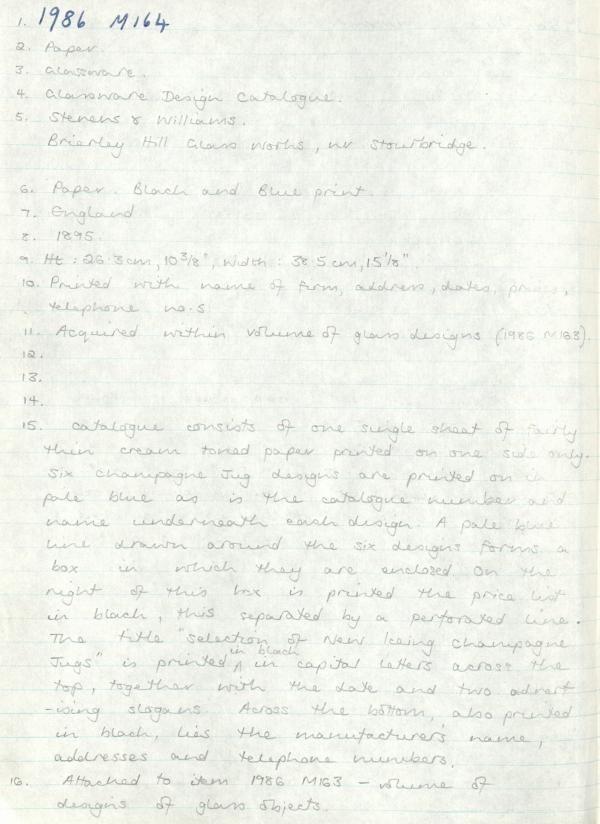 1. 1986 M164
2. Paper.
3. Glassware.
4. Glassware Design Catalogue.
5. Stevens & Williams.
Brierley Hill Glass Works, nr Stourbridge.
6. Paper. Black and Blue print.
7. England
8. 1895.
9. Ht : 26.3cm, 10 3/8", width : 38.5cm, 15 1/8".
10. Printed with name of firm, address, dates, prices,
telephone no.s.
11. Acquired within volume of glass designs (1986 M163).
12.
13.
14.
15. Catalogue consists of one single sheet of fairly
thin cream toned paper printed on one side only.
Six champagne Jug designs are printed on in
pale blue as is the catalogue number and
name underneath each design. A pale blue
line drawn around the six designs forms a
box in which they are enclosed. On the
right of this box is printed the price list
in black, this separated by a perforated line.
The title "selection of New Iceing Champagne
Jugs" is printed in black in capital letters across the
top, together with the date and two advert
-ising slogans. Across the bottom, also printed
in black, lies the manufacturers name,
addresses and telephone numbers.
16. Attached to item 1986 M163 - volume of
designs of glass objects.